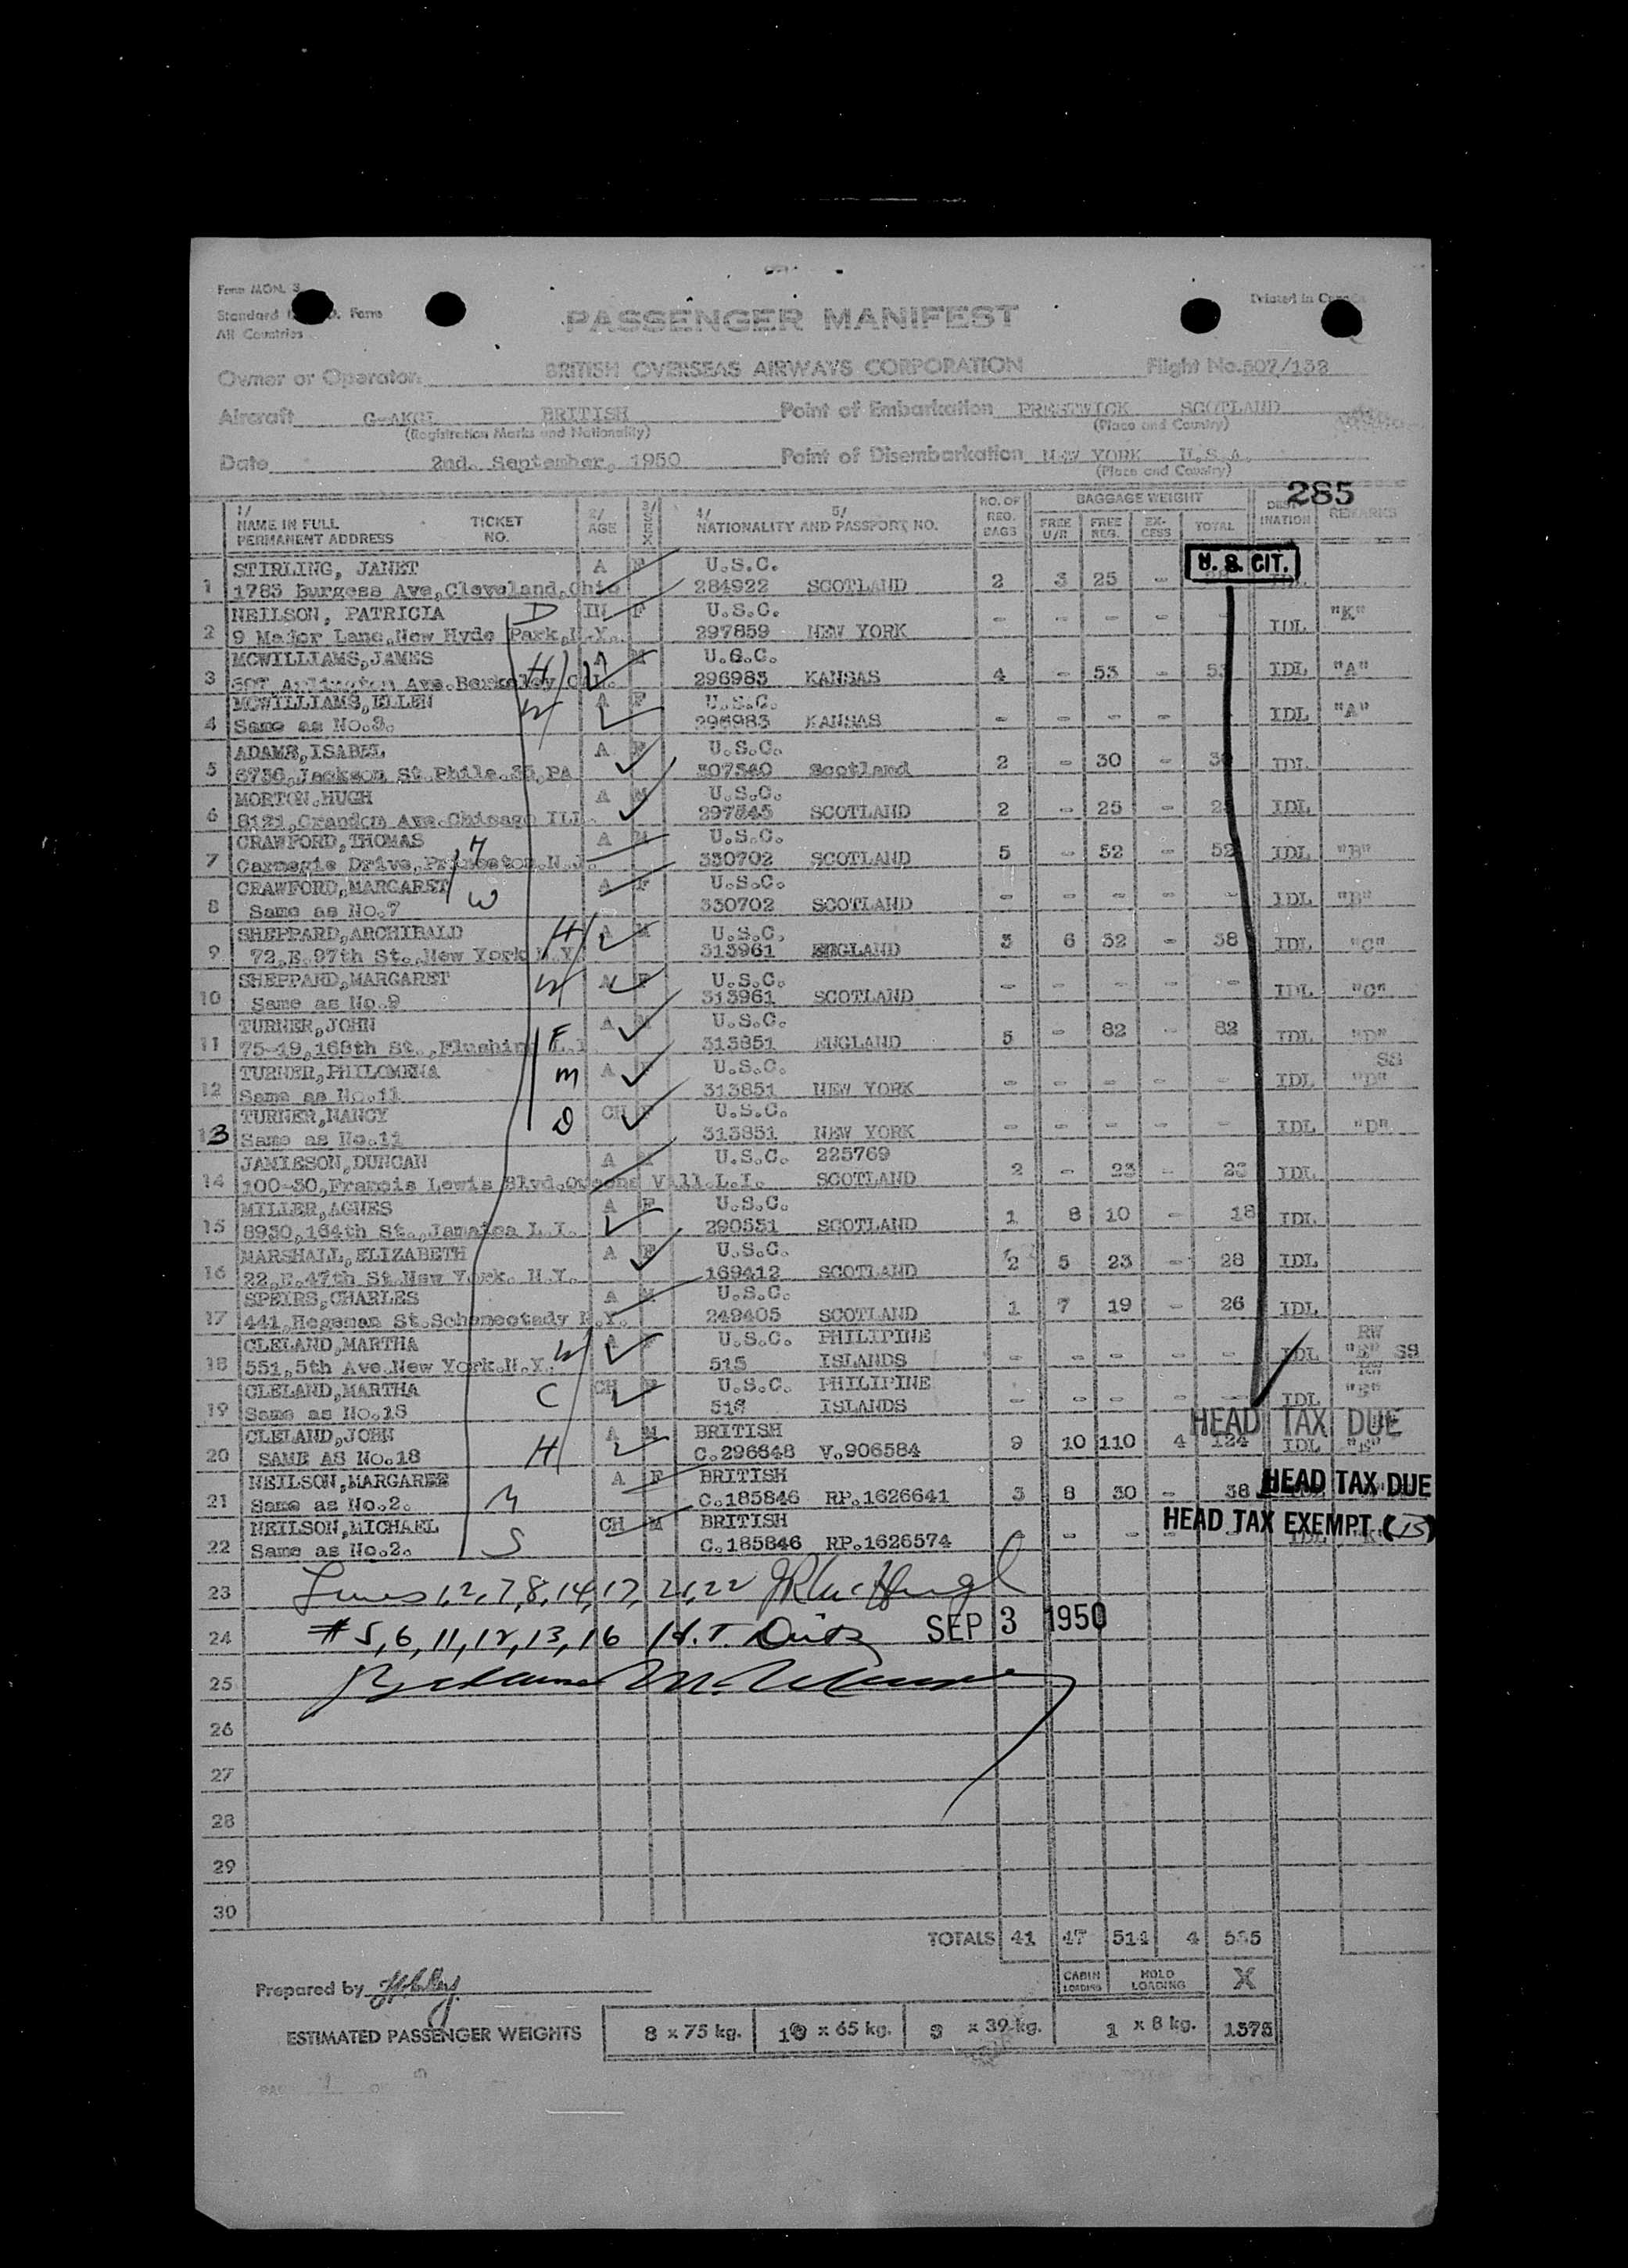 Form MON. 3
Standard Form
All Countries
Printed in Canada
PASSENGER MANIFEST
Owner or Operator BRITISH OVERSEAS AIRWAYS CORPORATION Flight No. 507/132
Aircraft G-AKGL BRITISH Point of Embarkation PRESTWICK SCOTLAND
(Registration Marks and Nationality) (Place and Country)
Date 2nd. September, 1950 Point of Disembarkation NEW YORK U.S.A.
(Place and Country)
285
1/ NAME IN FULL PERMANENT ADDRESS TICKET NO. 2/ AGE 3/ SEX 4/ NATIONALITY AND 5/ PASSPORT NO. NO. OF REG. BAGS BAGGAGE WEIGHT FREE U/R FREE REG. EX-CESS TOTAL DEST INATION REMARKS
U. S. CIT.
STIRLING, JANET A F U.S.C.
1 1785 Burgess Ave,Cleveland,Ohio 284922 SCOTLAND 2 3 25 - IDL
NEILSON, PATRICIA D IN F U.S.C. "K"
2 9 Major Lane,New Hyde Park,N.Y. 297859 NEW YORK - - - - IDL
MCWILLIAMS,JAMES H A M U.S.C.
3 607 Arlington Ave.Berkeley CAL. 296983 KANSAS 4 - 53 - 53 IDL "A"
MCWILLIAMS,ELLEN W A F U.S.C.
4 Same as No.3. 296983 KANSAS - - - - IDL "A"
ADAMS,ISABEL A F U.S.C.
5 6736,Jackson St.Phila.35,PA 307340 Scotland 2 - 30 - 30 IDL
MORTON,HUGH A M U.S.C.
6 8121,Crandon Ave.Chicago ILL. 297345 SCOTLAND 2 - 25 - 25 IDL
CRAWFORD,THOMAS H A M U.S.C.
7 Carnegie Drive,Princeton.N.J. 330702 SCOTLAND 5 - 52 - 52 IDL "B"
CRAWFORD,MARGARET W A F U.S.C.
8 Same as No.7 330702 SCOTLAND - - - - - IDL "B"
SHEPPARD,ARCHIBALD H A M U.S.C.
9 72,E.97th St.,New York N.Y. 313961 ENGLAND 3 6 32 - 38 IDL "C"
SHEPPARD,MARGARET W A F U.S.C.
10 Same as No.9 313961 SCOTLAND - - - - - IDL "C"
TURNER,JOHN F A M U.S.C.
11 75-19,168th St.,Flushing L.I. 313851 ENGLAND 5 - 82 - 82 IDL "D"
TURNER,PHILOMENA m A F U.S.C. SS
12 Same as No.11 313851 NEW YORK - - - - - IDL "D"
TURNER,NANCY D CH F U.S.C.
13 Same as No.11 313851 NEW YORK - - - - - IDL "D"
JAMIESON,DUNCAN A M U.S.C. 225769
14 100-30,Francis Lewis Blvd.Queens Vill.L.I. SCOTLAND 2 - 23 - 23 IDL
MILLER,AGNES A F U.S.C.
15 8930,164th St.,Jamaica L.I. 290551 SCOTLAND 1 8 10 - 18 IDL
MARSHALL,ELIZABETH A F U.S.C.
16 22,E.47th St.New York. N.Y. 169412 SCOTLAND 2 5 23 - 28 IDL
SPEIRS,CHARLES A M U.S.C.
17 441,Hegeman St.Schenectady N.Y. 249405 SCOTLAND 1 7 19 - 26 IDL
CLELAND,MARTHA W A F U.S.C. PHILIPINE RW
18 551,5th Ave.New York.N.Y. 515 ISLANDS - - - - - IDL "E" SS
CLELAND,MARTHA C CH F U.S.C. PHILIPINE RW
19 Same as No.18 ISLANDS - - - - - IDL "E"
HEAD TAX DUE
CLELAND,JOHN H A M BRITISH
20 SAME AS No.18 C.296848 V.906584 9 10 110 4 124 IDL "E"
NEILSON,MARGARET A F BRITISH HEAD TAX DUE
21 Same as No.2. M C.185846 RP.1626641 3 8 30 - 38
NEILSON,MICHAEL CH M BRITISH HEAD TAX EXEMPT (15)
22 Same as No.2. S C.185846 RP.1626574 - - - IDL "K"
23 Lines 1,2,7,8,14,17, 21,22
24 #5,6,11,12,13,16 SEP 3 1950
25
26
27
28
29
30
TOTALS 41 47 514 4 565
CABIN LOADING HOLD LOADING X
Prepared by
ESTIMATED PASSENGER WEIGHTS 8 x 75 kg. 10 x 65 kg. 3 x 39 kg. 1 x 8 kg. 1575